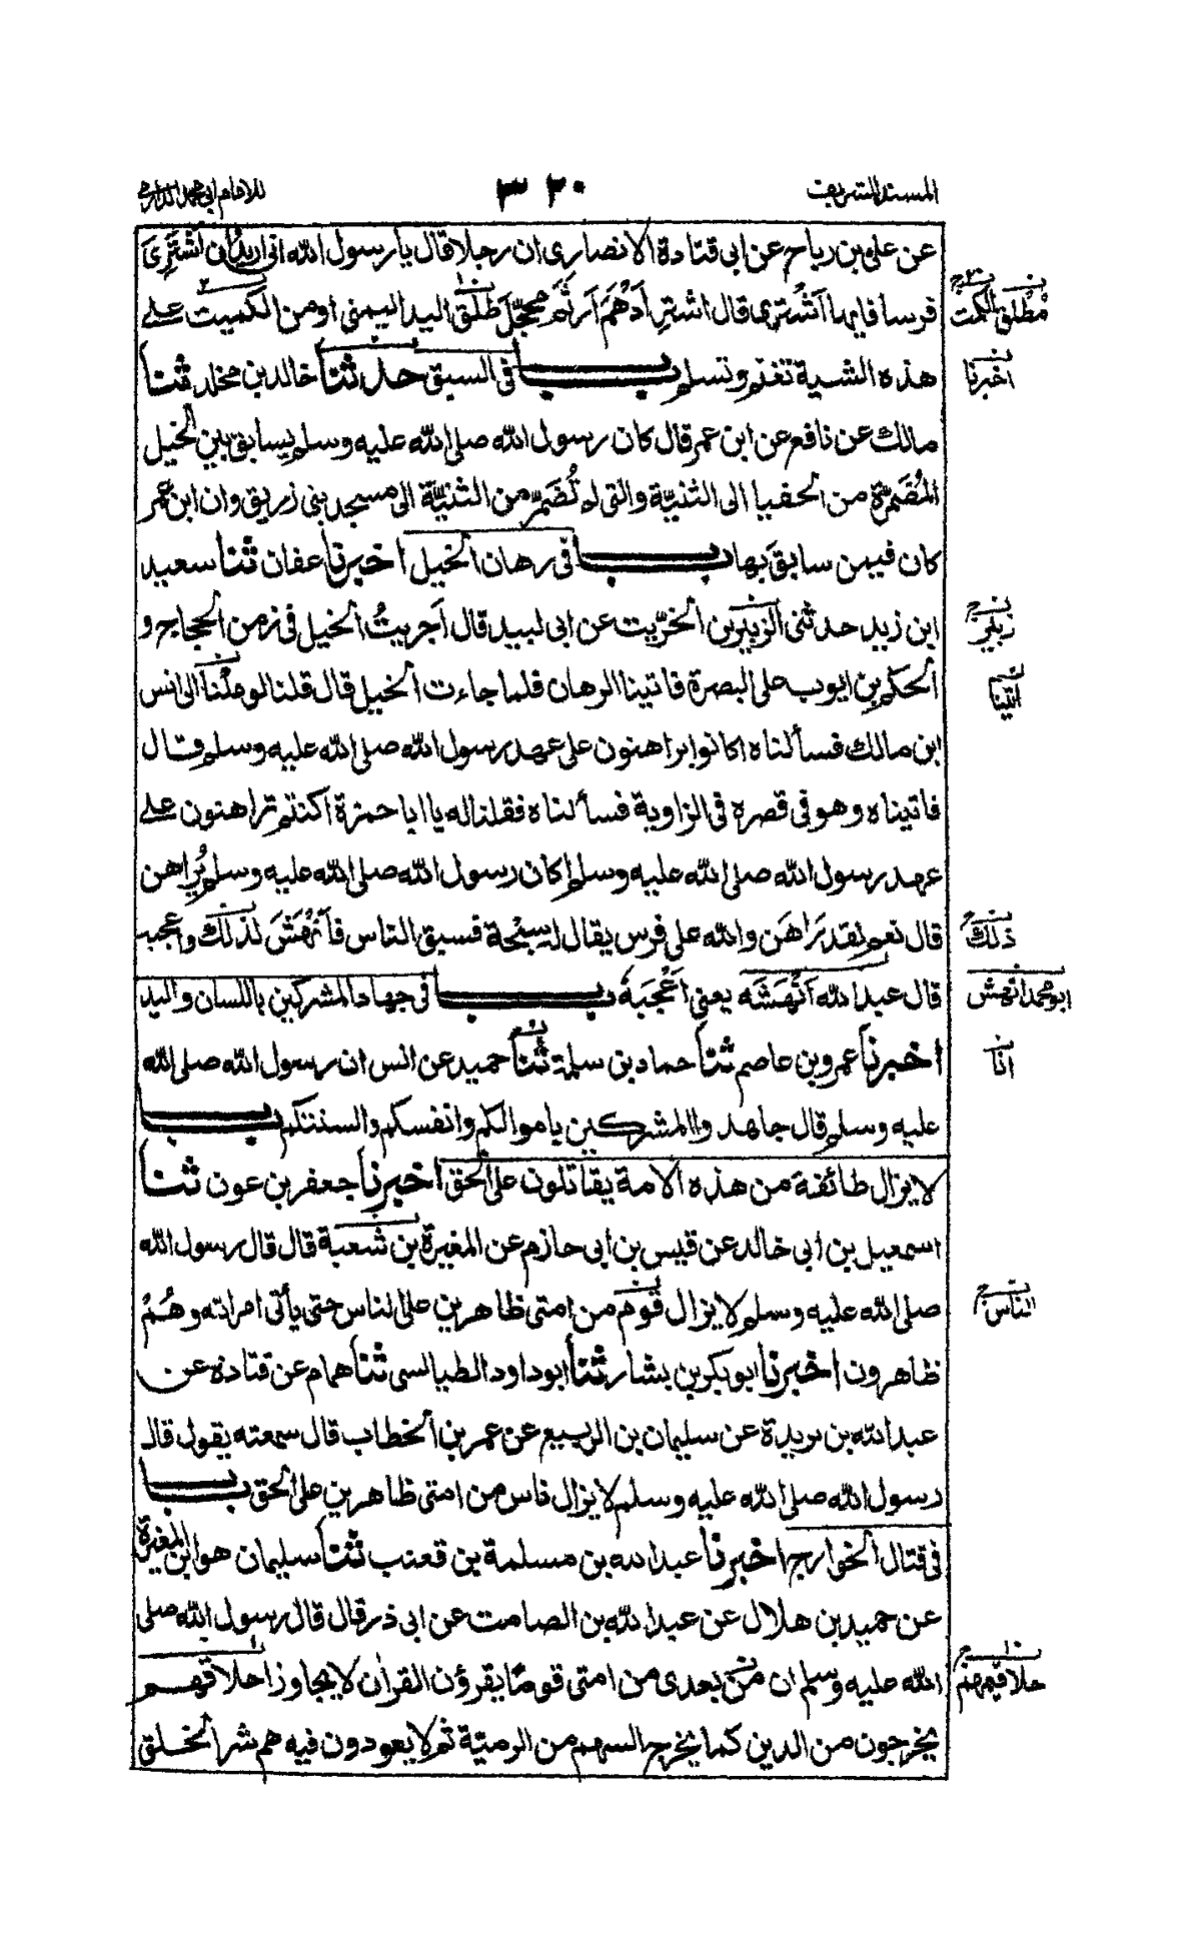 المسند الشريف ٣٢٠ للامام ابى محمد الدارمى
عن على بن رباح عن ابى قتادة الانصارى ان رجلا قال يا رسول الله انى اريد ان اَشْتَرِىَ
فرسا فايها اَشْترى قال اشترِ اَدْهَمَ اَرثَمَ محجّلَ طَلْقَ اليد اليمنى او من الكميت على
مُطلق الكمت
هذه الشية تغنم وتسلم باب فى السبق حدثنا خالد بن مخلد ثنا
اخبرنا
مالك عن نافع عن ابن عمر قال كان رسول الله صلى الله عليه وسلم يسابق بين الخيل
المُضَمّرَة من الحفيا الى الثنيّة والتى لم تُضَمّر من الثنيّة الى مسجد بنى زريق وان ابن عمر
كان فيمن سابقَ بها باب فى رهان الخيل اخبرنا عفان ثنا سعيد
ابن زيد حدثنى الزبير بن الخرّيت عن ابى لبيد قال اَجريتُ الخيل فى زمن الحجاج و
زبير
الحكم بن ايوب على البصرة فاتينا الرهان فلما جاءت الخيل قال قلنا لو مِلْنا الى انس
اتينا
ابن مالك فسألناه اكانوا يراهنون على عهد رسول الله صلى الله عليه وسلم قال
فاتيناه وهو فى قصره فى الزاوية فسألناه فقلنا له يا ابا حمزة اكنتم تراهنون على
عهد رسول الله صلى الله عليه وسلم اكان رسول الله صلى الله عليه وسلم يُراهن
قال نعم لقد رَاهَن والله على فرس يقال له سبْحة فسبق الناس فاَنْهَشَ لذلك واعجبه
ذلك
قال عبد الله اَنْهَشَه يعنى اَعْجَبَهُ باب فى جهاد المشركين باللسان واليد
ابو محمد انهش
اخبرنا عمرو بن عاصم ثنا حماد بن سلمة ثنا حميد عن انس ان رسول الله صلى الله
انا
عليه وسلم قال جاهدوا المشركين باموالكم وانفسكم والسنتكم باب
لا يزال طائفة من هذه الامة يقاتلون على الحق اخبرنا جعفر بن عون ثنا
اسمعيل بن ابى خالد عن قيس بن ابى حازم عن المغيرة بن شعبة قال قال رسول الله
صلى الله عليه وسلم لا يزال قوم من امتى ظاهرين على الناس حتى يأتى امر الله وهُمْ
الناس
ظاهرون اخبرنا ابو بكر بن بشار ثنا ابو داود الطيالسى ثنا همام عن قتادة عن
عبد الله بن بريدة عن سليمان بن الربيع عن عمر بن الخطاب قال سمعته يقول قال
رسول الله صلى الله عليه وسلم لا يزال ناس من امتى ظاهرين على الحق باب
فى قتال الخوارج اخبرنا عبد الله بن مسلمة بن قعنب ثنا سليمان هو ابن المغيرة
عن حميد بن هلال عن عبد الله بن الصامت عن ابى ذر قال قال رسول الله صلى
الله عليه وسلم ان من بعدى من امتى قومًا يقرؤن القراٰن لا يجاوز احلاقهم
حلاقيمهم
يخرجون من الدين كما يخرج السهم من الرميّة ثم لا يعودون فيه هم شر الخلق